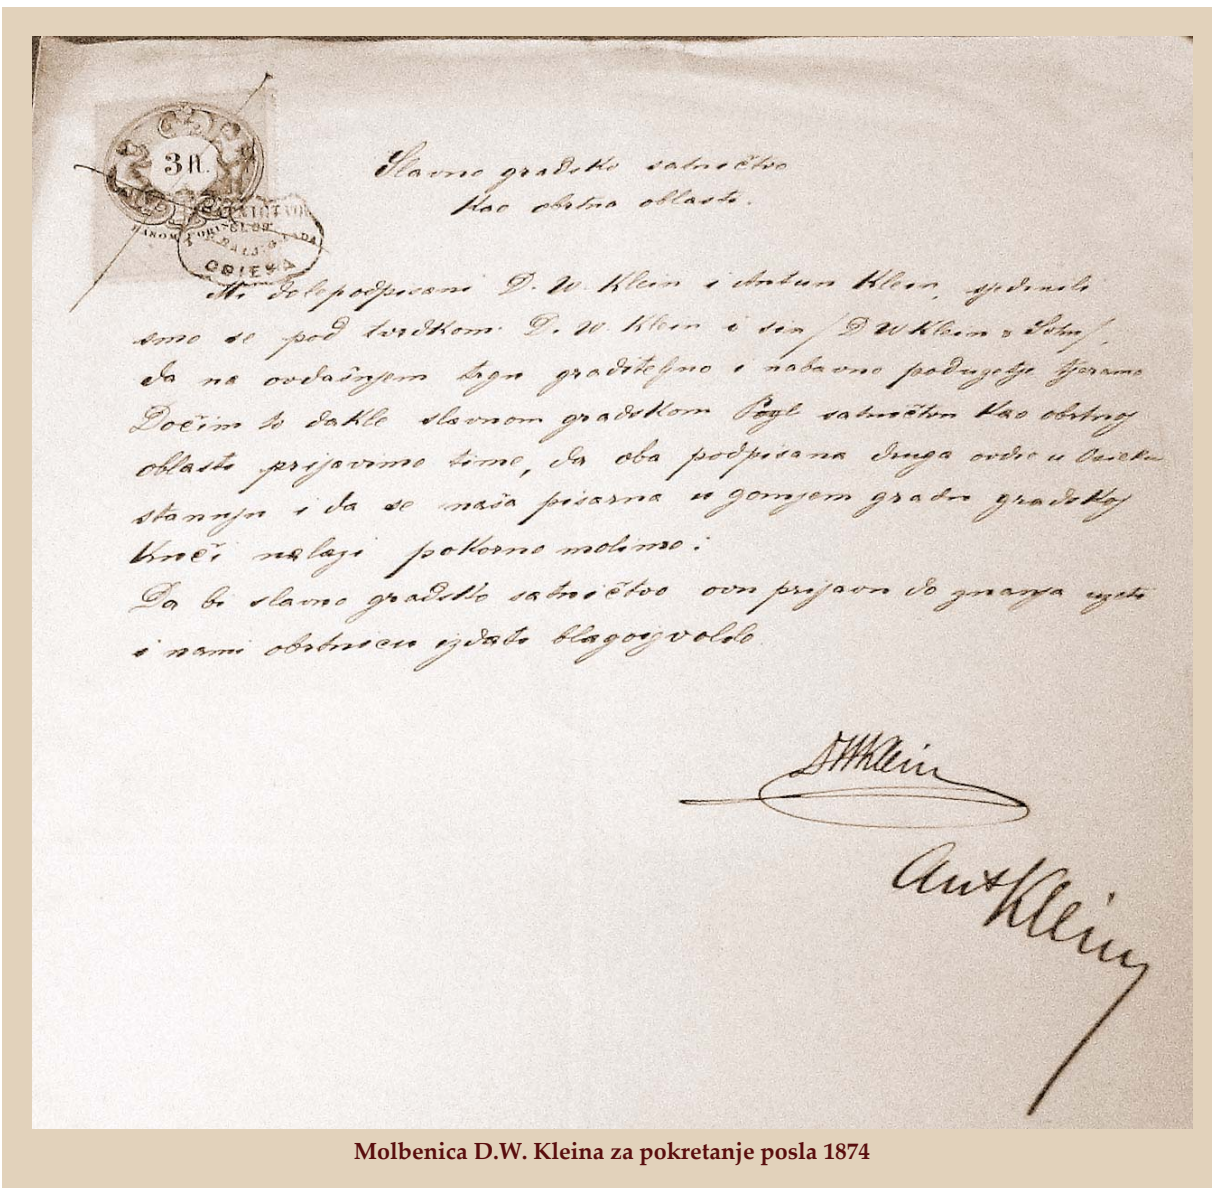 3 fl.
Slavno gradsko satničtvo
kao obrtna oblast.
OSIEKA
Mi dolepodpisani D. W. Klein i Antun Klein, sjedinili
smo se pod tvrdkom: D. W. Klein i sin / D W Klein & Sohn /,
da na ovdašnjem trgu graditeljno i nabavno poduzetje tjeramo
Dočim to dakle slavnom gradskom Pogl satničtvu kao obrtnoj
oblasti prijavimo time, da oba podpisana druga ovdie u Osieku
stanuju i da se naša pisarna u gornjem gradu gradskoj
kuči nalazi pokorno molimo:
Da bi slavno gradsko satničtvo ovu prijavu do znanja uzeti
i nami obrtnicu izdati blagoizvolilo.
D W Klein
Ant Klein
Molbenica D.W. Kleina za pokretanje posla 1874